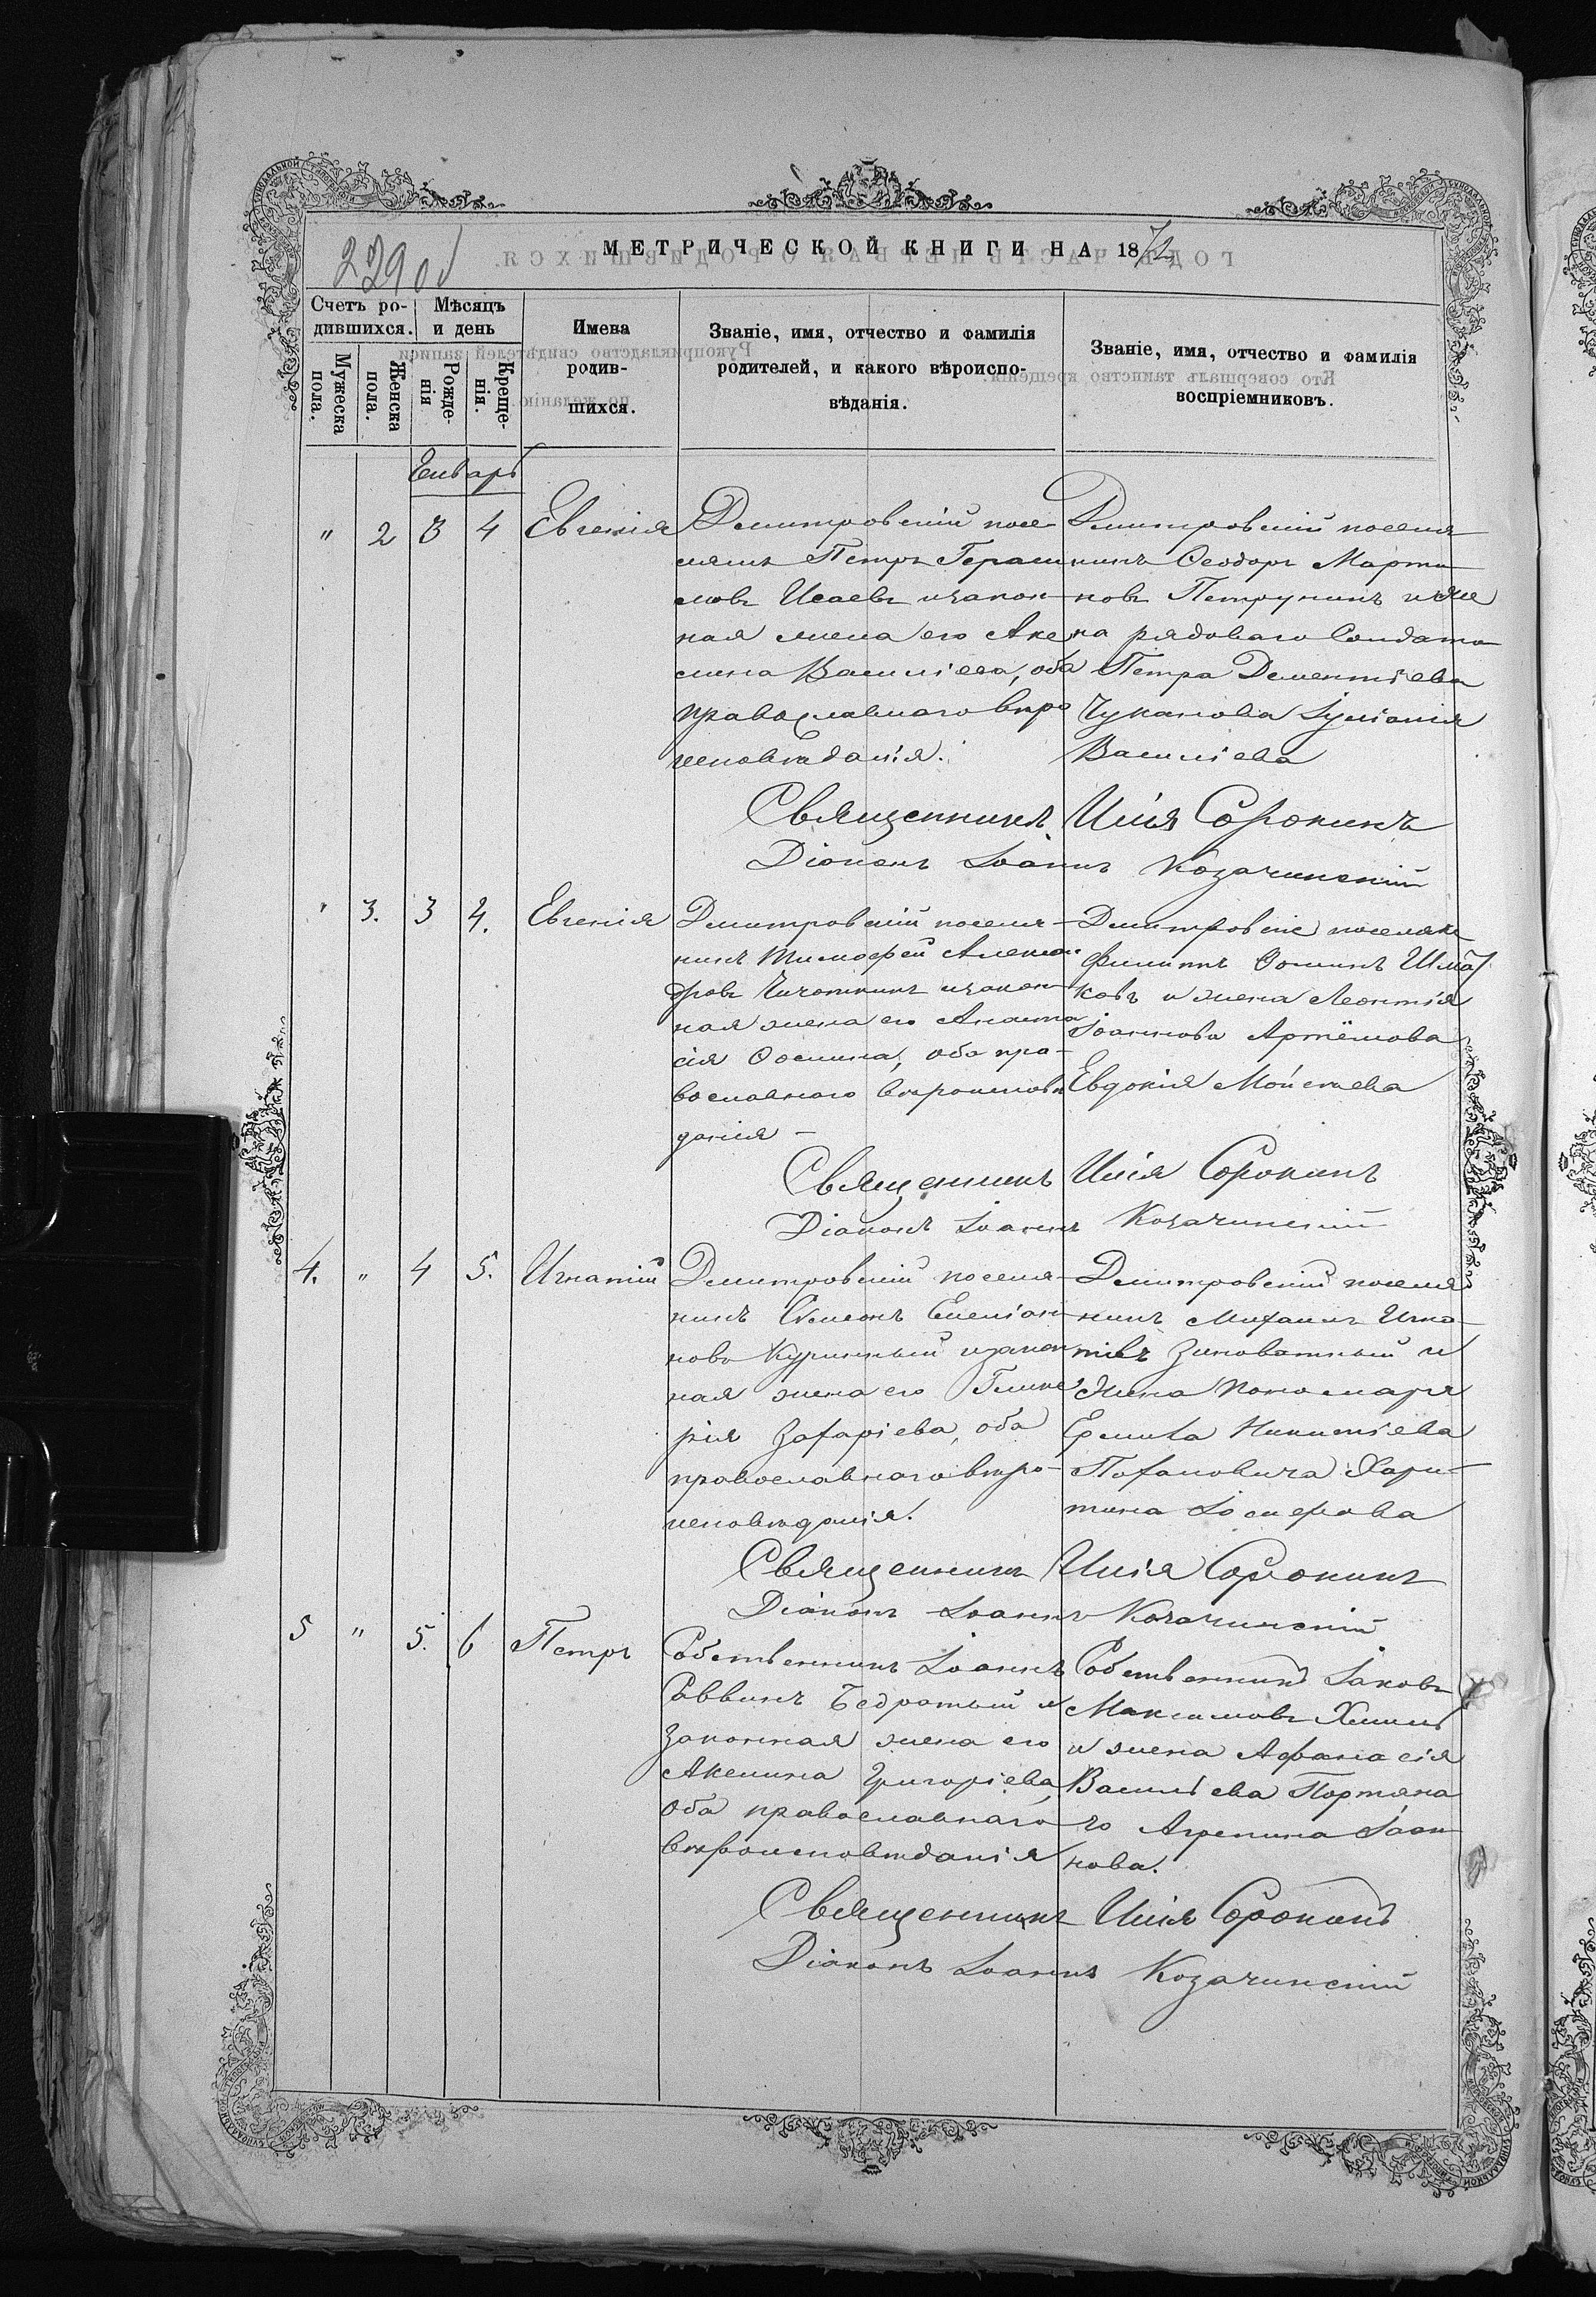 МЕТРИЧЕСКОЙ КНИГИ НА 1872
229 об
Счетъ ро-
дившихся.
Мужеска
пола.
Женска
пола.
Мѣсяцъ
и день
Рожде-
нія
Креще-
нія.
Имена
родив-
шихся.
Званіе, имя, отчество и фамилія
родителей, и какого вѣроиспо-
вѣданія.
Званіе, имя, отчество и фамилія
воспріемниковъ.
Енварь
" 2 3 4 Евгенія
Дмитровскій посе-
Петръ Гераси
мовъ Исаевъ и закон-
ная жена его Аке
лина Василіева, оба
православнаго вѣро
исповѣданія.
Дмитровскій поселя
нинъ Ѳеодоръ Марты
новъ Петрунинъ и же
на рядоваго Солдата
Петра Дементіева
Чуканова Іуліанія
Василіева
Священникъ Илія Сорокинъ
Діаконъ Іоаннъ Козачинскій
" 3. 3 4. Евгенія
Дмитровскій поселя-
нинъ Тимофей Алексан
дровъ и закон-
ная жена его Анаста
сія Ѳомина, оба пра-
вославнаго вѣроисповѣ
данія
Дмитровскіе поселяне
Филиппъ Ѳоминъ Шма
ковъ и жена Леонтія
Іоаннова Артёмова
Евдокія Моисеева
Священникъ Илія Сорокинъ
Діаконъ Іоаннъ Козачинскій
4. " 4 5. Игнатій
Дмитровскій поселя-
нинъ Симеонъ Емеліан
новъ Куринный и закон
ная жена его Глике
рія Захаріева, оба
православнаго вѣро-
исповѣданія.
Дмитровскій поселя
нинъ Михаилъ Игна-
тіевъ Зиноватный и
жена пономаря
Ермила Никитіева
Потаповича Хари-
тина Іосифова
Священникъ Илія Сорокинъ
Діаконъ Іоаннъ Козачинскій
5 " 5. 6 Петръ
Собственникъ Іоаннъ
Саввинъ Бедратый и
законная жена его
Акилина Григоріева,
оба православнаго
вѣроисповѣданія
Собственникъ Іаковъ
Максимовъ Хмиль
и жена Афанасія
Василіева Портяна
го Агрипина Іоан
нова.
Священникъ Илія Сорокинъ
Діаконъ Іоаннъ Козачинскій